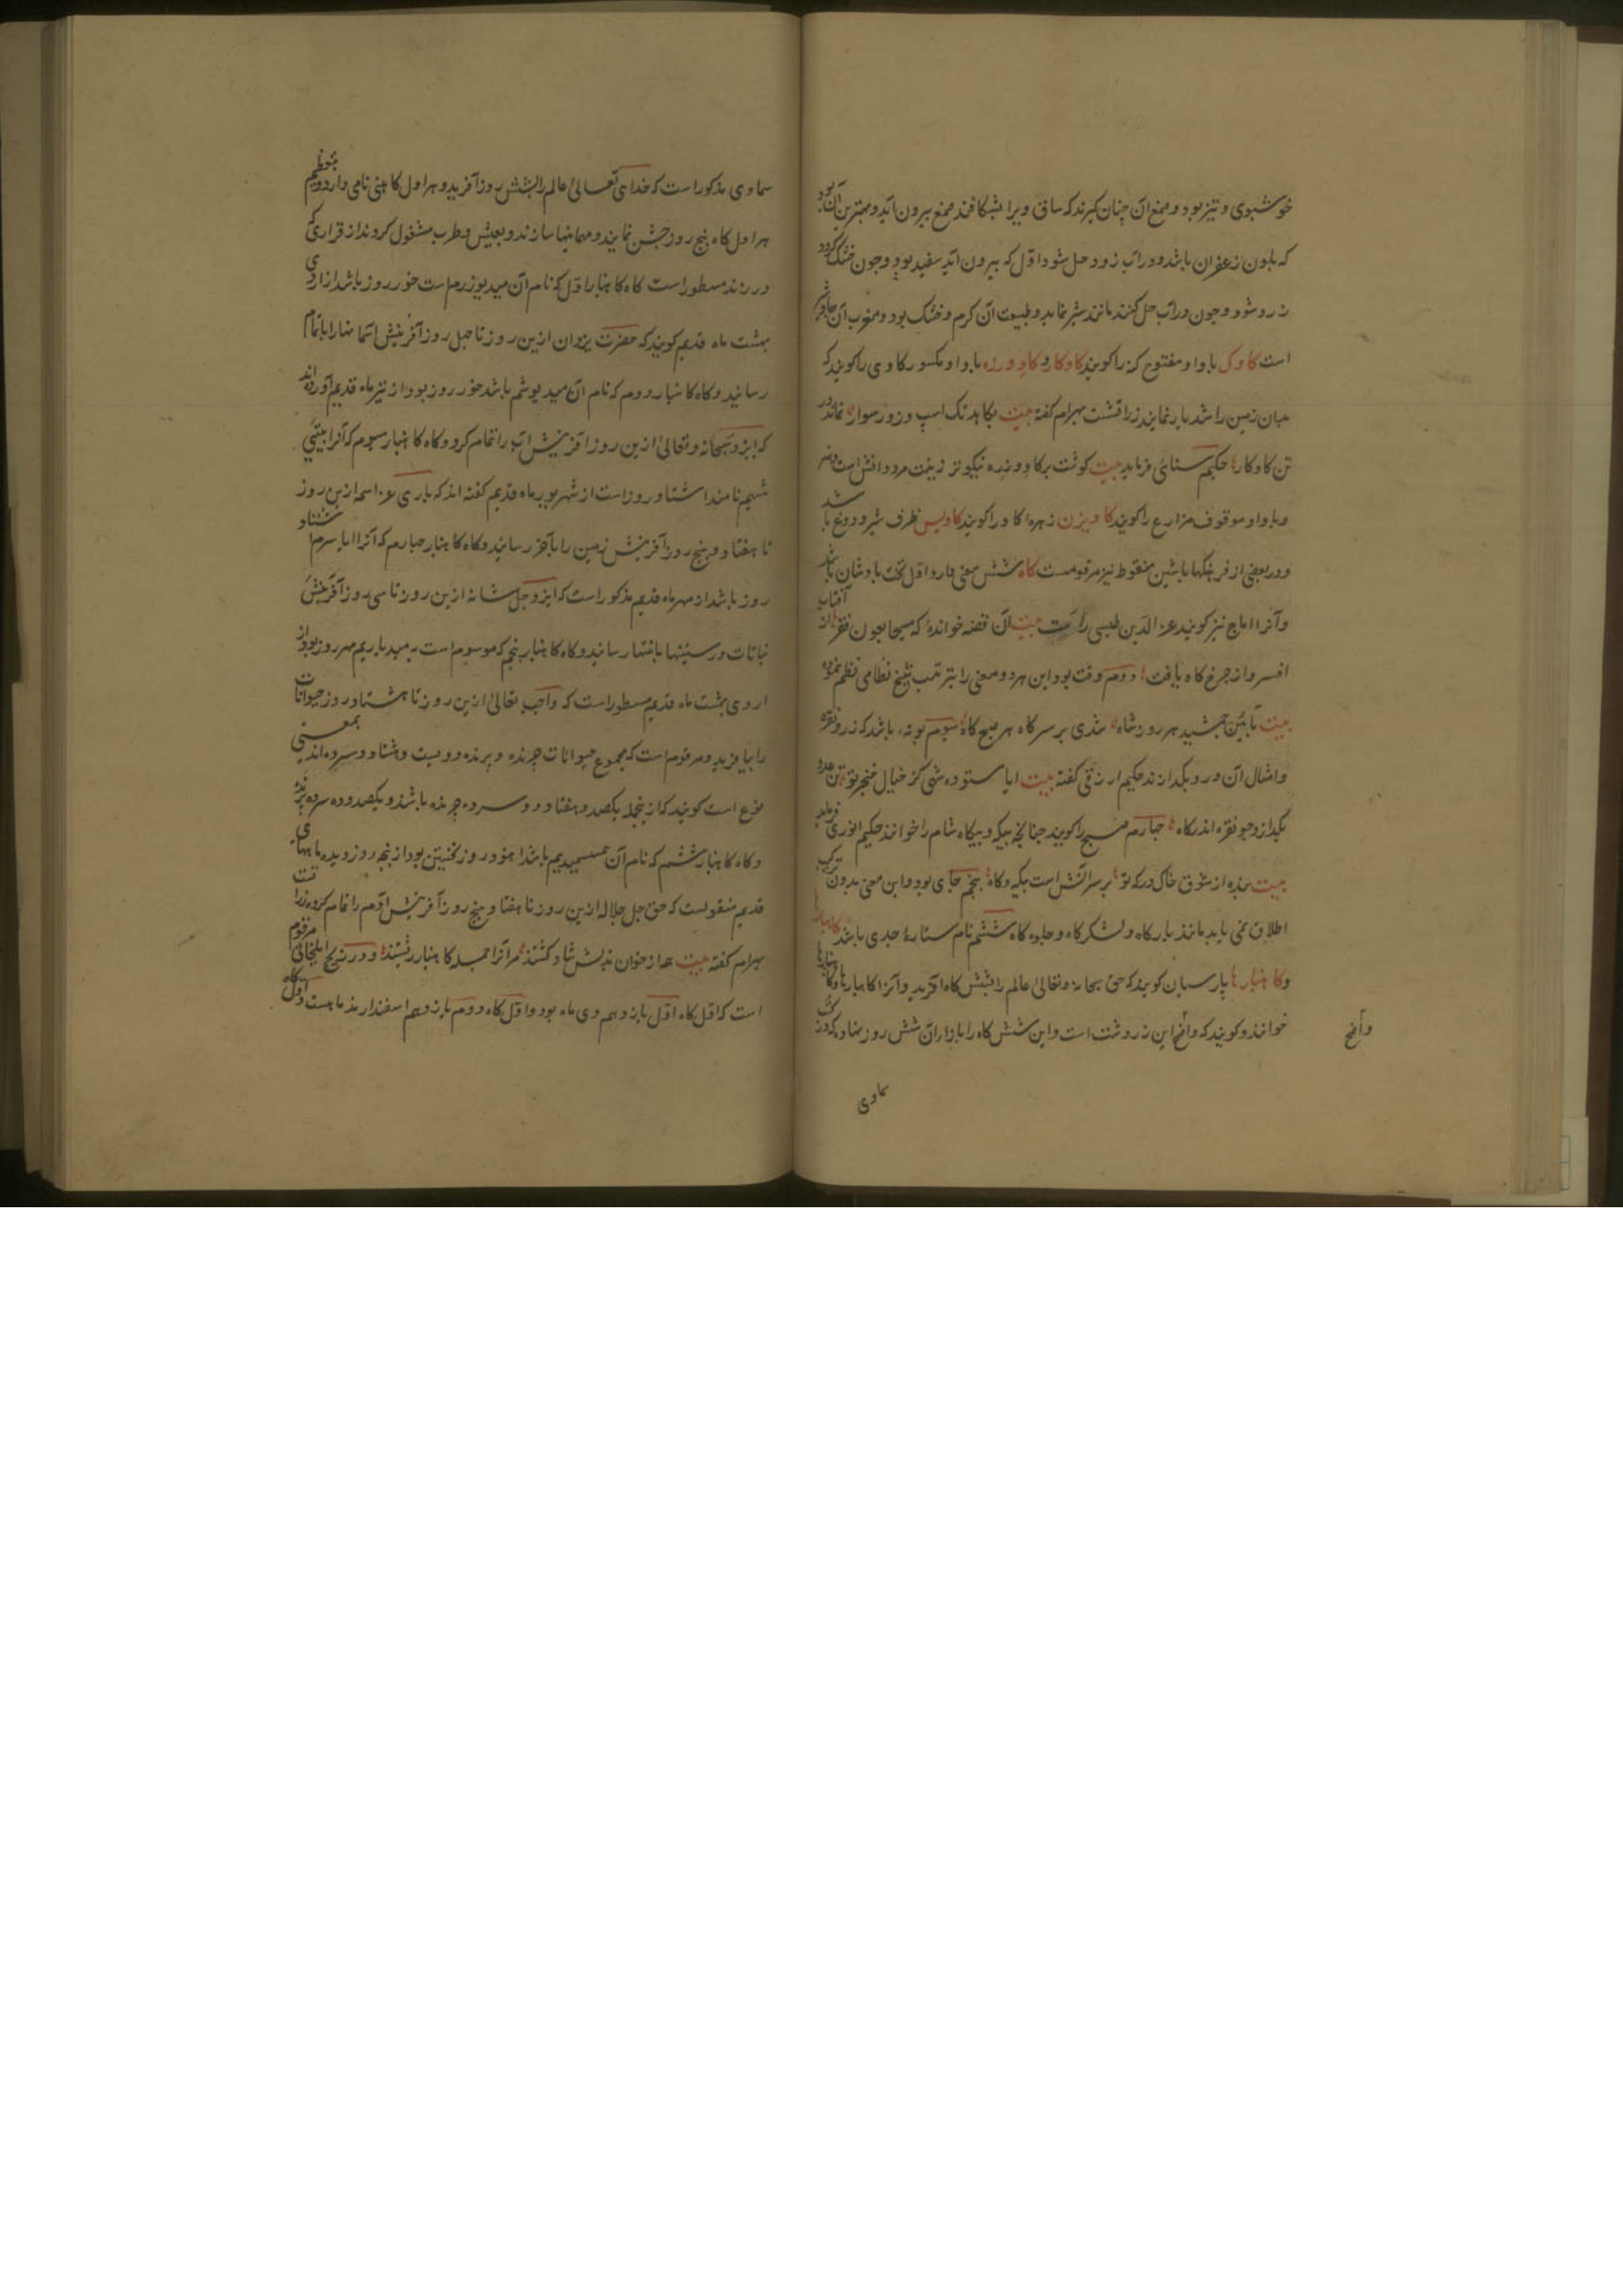 خوشبوی و تیز بود و صمغ آن چنان کیرند که ساق ویرا بشکافند صمغ بیرون آید و بهترین آن بود
که بلون زعفران باشد و در آب زود حل شود اوّل که بیرون آید سفید بود و چون خشک کردد
زرد شود و چون در آب حل کنند مانند شیر نماید و طبیعت آن کرم و خشک بود و معرب آن جاوشیر
است کاوک با واو مفتوح کنه را کویند کاوکار و کاو ورزه با واو مکسور کاوی را کویند که
بدان زمین را شد یار نمایند زراتشت بهرام کفته بیت بکاهد تک اسپ و زور سوار نماند در
تن کاو کار حکیم سنائی فرماید بیت کوشت بر کاو ورزه نیکوتر زینت مرد دانش است و هنر
و با واو موقوف مزارع را کویند کاویزن زهره کاو را کویند کاویس ظرف شیر و دوغ باشد
و در بعضی از فرهنکها با شین منقوط نیز مرقومست کاه شش معنی دارد اوّل تخت پادشاهان باشد
و آنرا اماج نیز کویند عزالدین طبسی راست بیت آن قصه خوانده که مسیحا بعون فقر از آفتاب
افسر و از چرخ کاه یافت دوم وقت بود این هر دو معنی را بترتیب شیخ نظامی نظم نموده
بیت بآیین جمشید هر روز شاه شدی بر سر کاه هر صبح کاه سوم بوته باشد که زر و نقره
و امثال آن در و بکدازند حکیم ازرقی کفته بیت ایا ستوده شهی کز خیال خنجر تو تن عدو
بکدازد چو نقره اندر کاه چهارم صبح را کویند چنانچه بیکه و بیکاه شام را خوانند حکیم انوری فرماید
بیت بنده از شوق خاک درکه تو بر سر آتش است بیکه و کاه پنجم جای بود و این معنی بدون ترکیب
اطلاق نمی یابد مانند بارکاه و لشکرکاه و جلوه کاه ششم نام ستارهٔ جدی باشد کاهبارها
و کاهنبارها پارسیان کویند که حق سبحانه و تعالی عالم را بشش کاه آفرید و آنرا کاهبارها و کاهنبارها
خوانند و کویند که واضع این زردشت است و این شش کاه را بازاء آن شش روز نهاده که در کتب
واضع
کاوی
سماوی مذکور است که خدای تعالی عالم را بشش روز آفرید و هر اول کاهی نامی دارد و بتعظیم
هر اول کاه پنج روز جشن نمایند و مهمانیها سازند و بعیش و طرب مشغول کردند از قراری که
در زند مسطور است کاه کاهنبار اوّل که نام آن میدیوزرم است خور روز باشد از اردی
بهشت ماه قدیم کویند که حضرت یزدان ازین روز تا چهل روز آفرینش آسمانها را باتمام
رسانید و کاه کاهنبار دوم که نام آن میدیوشم باشد خور روز بود از تیر ماه قدیم آورده اند
که ایزد سبحانه و تعالی ازین روز آفرینش آب را تمام کرد و کاه کاهنبار سوم که آنرا پیتی
شهیم نامند اشتاد روز است از شهریور ماه قدیم کفته اند که باری عز اسمه ازین روز
تا هفتاد و پنج روز آفرینش زمین را بآخر رسانید و کاه کاهنبار چهارم که آنرا ایاسرم اشتاد
روز باشد از مهر ماه قدیم مذکور است که ایزد جل شانه ازین روز تا سی روز آفرینش
نباتات و رستنیها بانتها رسانید و کاه کاهنبار پنجم که موسوم است به میدیاریم مهر روز بود از
اردی بهشت ماه قدیم مسطور است که واجب تعالی ازین روز تا هشتاد روز حیوانات
را بیافرید و مرقوم است که مجموع حیوانات چرنده و پرنده دویست و هشتاد و دو سرده اند بمعنی
نوع است کویند که از ینجمله یکصد و هفتاد و دو سرده چرنده باشد و یکصد و ده سرده پرنده
و کاه کاهنبار ششم که نام آن همسپمیدیم باشد اهنود روز نخستین بود از پنجه دزدیده ماههای
قدیم منقولست که حق جل جلاله ازین روز تا هفتاد و پنج روز آفرینش آدم را تمام کرد زراتشت
بهرام کفته بیت همه از خوان بذلش شاد کشتند مر آنرا جمله کاهنبار رشتند و در زیج ایلخانی مرقوم
است که اوّل کاه اوّل یازدهم دی ماه بود و اوّل کاه دوم یازدهم اسفندارمذ ماهست و اوّل کاه